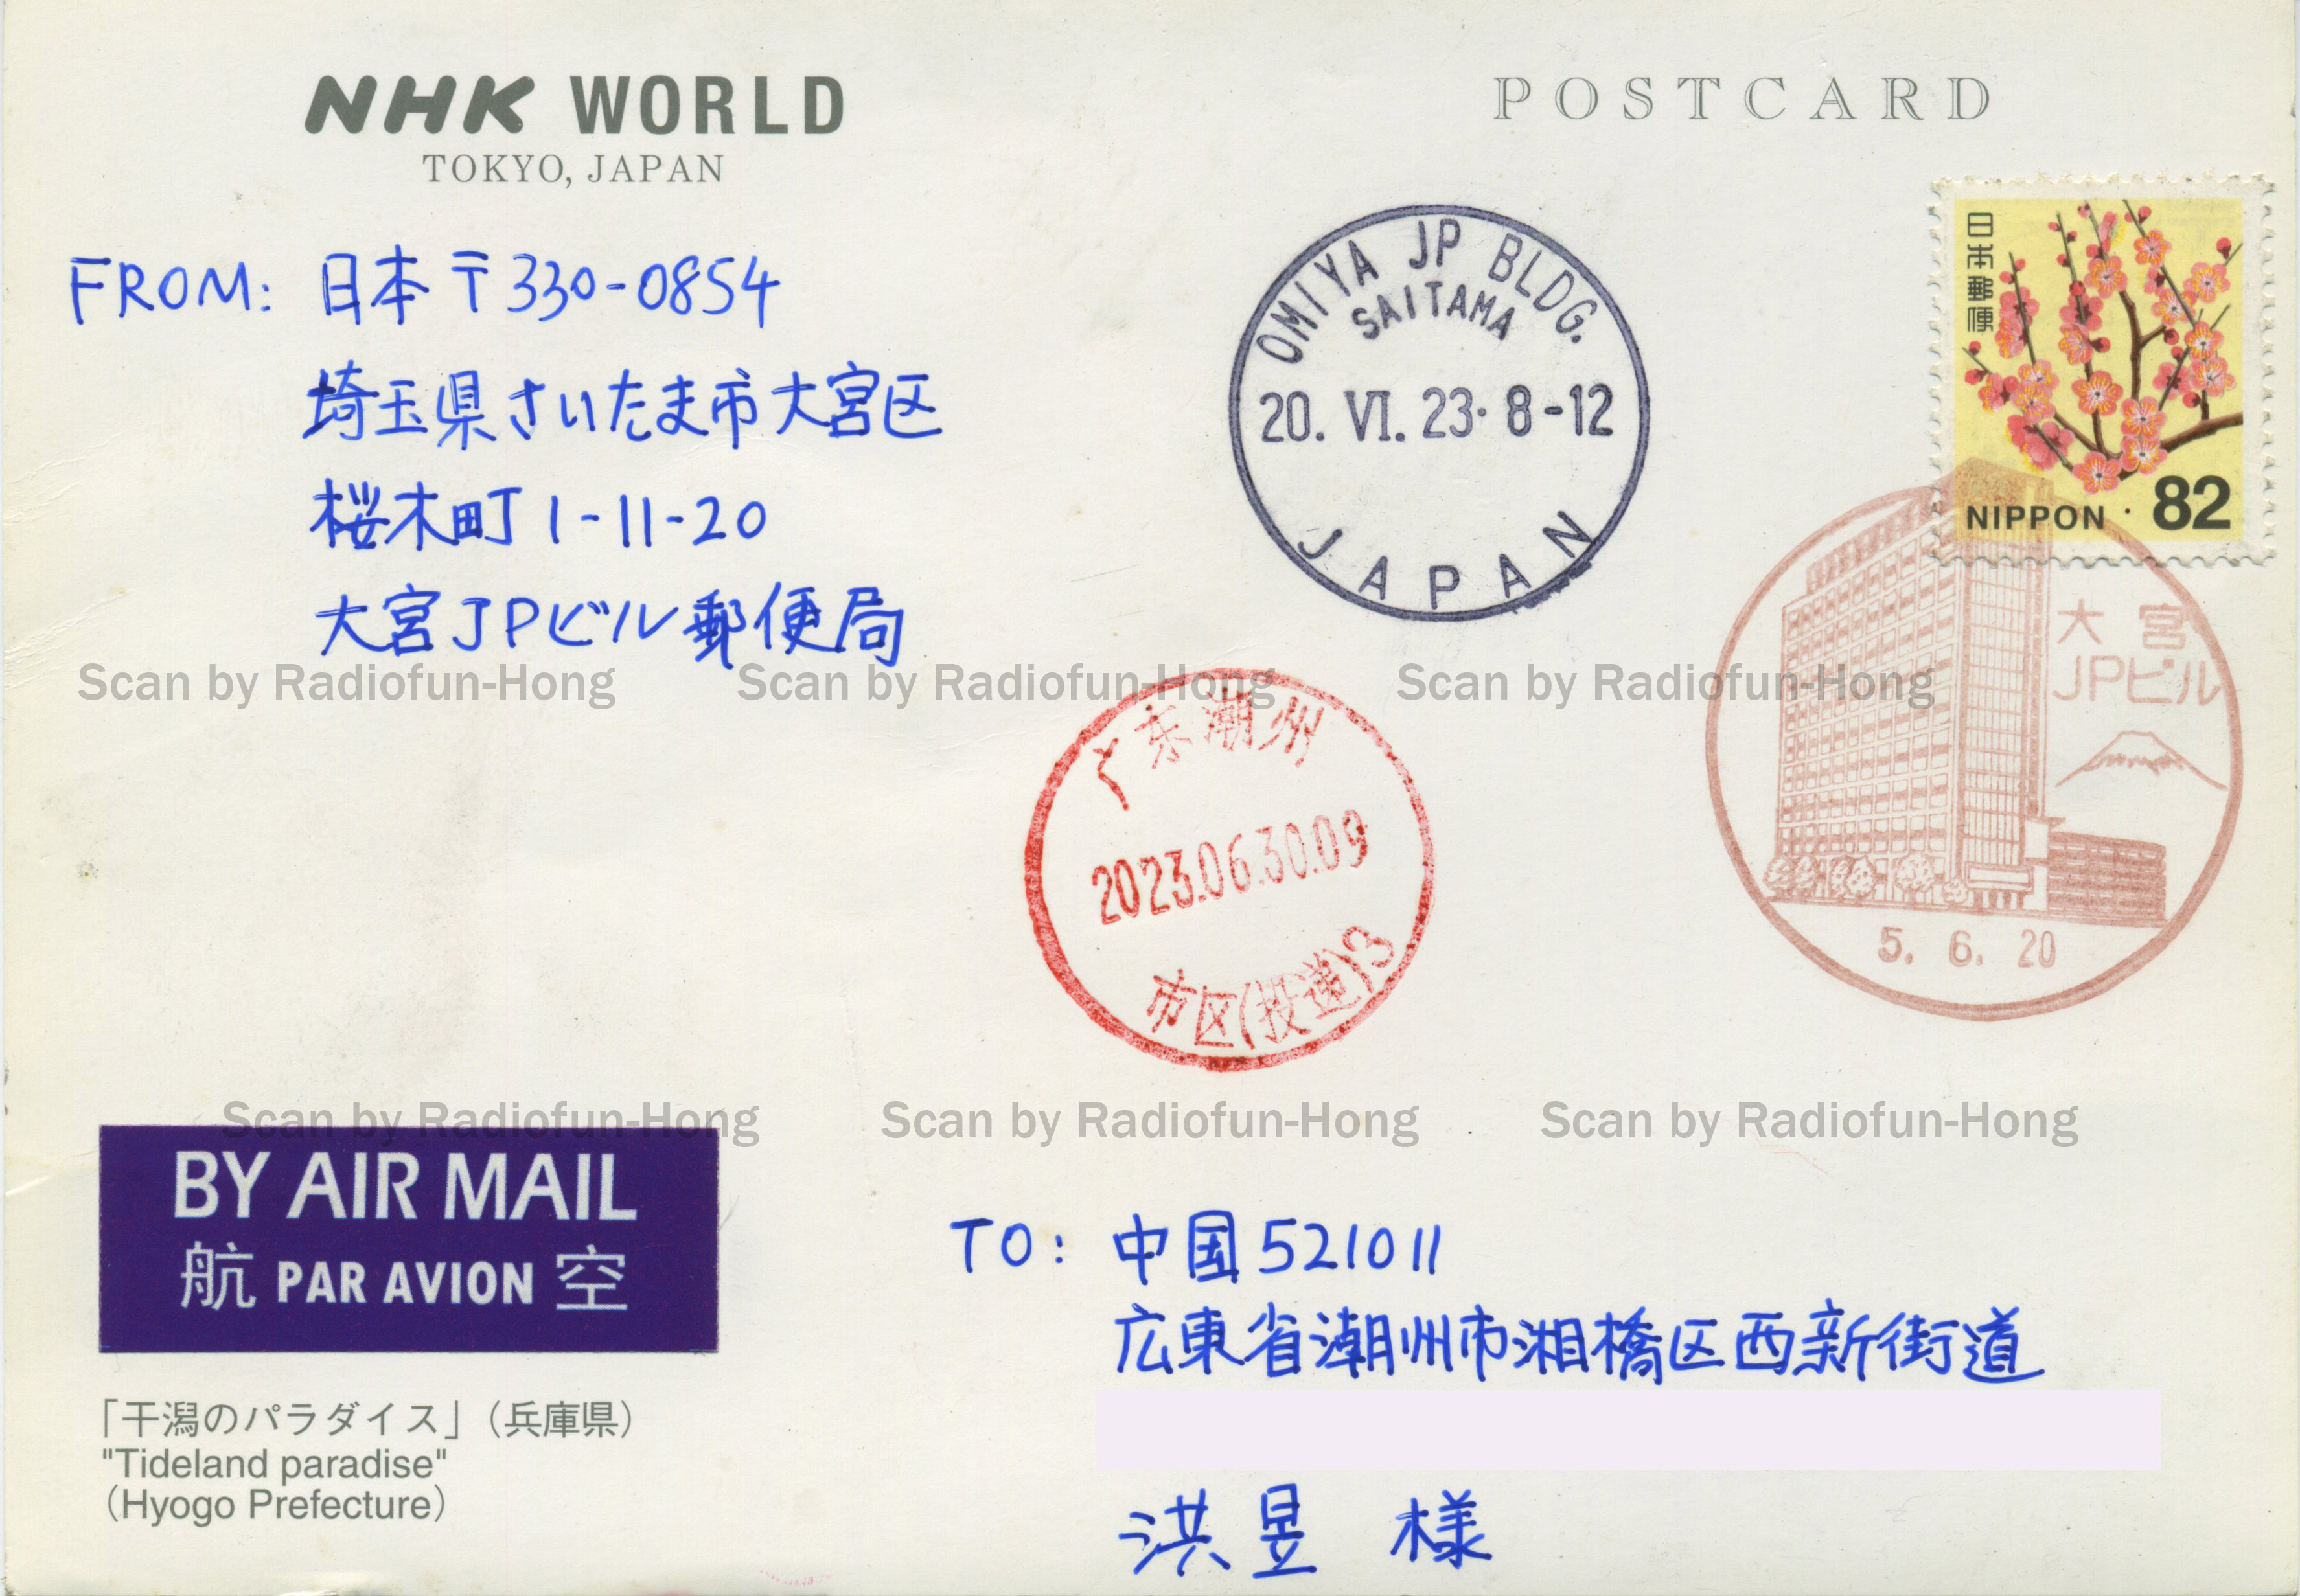 NHK WORLD
TOKYO, JAPAN
POSTCARD
FROM: 日本 〒330-0854
埼玉県さいたま市大宮区
桜木町1-11-20
大宮JPビル郵便局
OMIYA JP BLDG.
SAITAMA
20. VI. 23. 8-12
JAPAN
日本郵便
NIPPON・82
大宮
JPビル
5. 6. 20
Scan by Radiofun-Hong Scan by Radiofun-Hong Scan by Radiofun-Hong
广东潮州
2023.06.30.09
市区(投递)3
Scan by Radiofun-Hong Scan by Radiofun-Hong Scan by Radiofun-Hong
BY AIR MAIL
航 PAR AVION 空
「干潟のパラダイス」（兵庫県）
"Tideland paradise"
（Hyogo Prefecture）
TO: 中国 521011
広東省潮州市湘橋区西新街道
洪昱 様